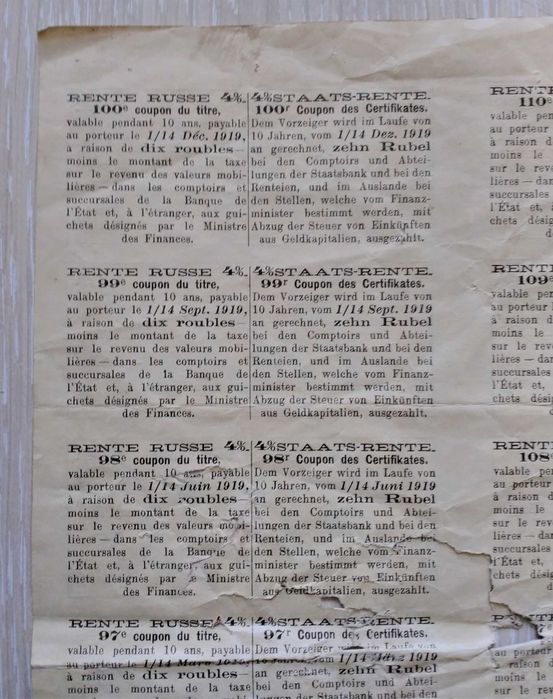 RENTE RUSSE 4%.
100e coupon du titre,
valable pendant 10 ans, payable
au porteur le 1/14 Déc. 1919,
à raison de dix roubles—
moins le montant de la taxe
sur le revenu des valeurs mobi-
lières—dans les comptoirs et
succursales de la Banque de
l'État et, à l'étranger, aux gui-
chets désignés par le Ministre
des Finances.
4%STAATS-RENTE.
100r Coupon des Certifikates.
Dem Vorzeiger wird im Laufe von
10 Jahren, vom 1/14 Dez. 1919
an gerechnet, zehn Rubel
bei den Comptoirs und Abtei-
lungen der Staatsbank und bei den
Renteien, und im Auslande bei
den Stellen, welche vom Finanz-
minister bestimmt werden, mit
Abzug der Steuer von Einkünften
aus Geldkapitalien, ausgezahlt.
RENTE
110
valable pen
au porteur
à raison d
moins le
sur le rev
lières—dan
succursales
l'État et, à
chets désig
RENTE RUSSE 4%.
99e coupon du titre,
valable pendant 10 ans, payable
au porteur le 1/14 Sept. 1919,
à raison de dix roubles—
moins le montant de la taxe
sur le revenu des valeurs mobi-
lières—dans les comptoirs et
succursales de la Banque de
l'État et, à l'étranger, aux gui-
chets désignés par le Ministre
des Finances.
4%STAATS-RENTE.
99r Coupon des Certifikates.
Dem Vorzeiger wird im Laufe von
10 Jahren, vom 1/14 Sept. 1919
an gerechnet, zehn Rubel
bei den Comptoirs und Abtei-
lungen der Staatsbank und bei den
Renteien, und im Auslande bei
den Stellen, welche vom Finanz-
minister bestimmt werden, mit
Abzug der Steuer von Einkünften
aus Geldkapitalien, ausgezahlt.
RENTE
109e
valable pen
au porteur
à raison d
moins le
sur le rev
lières—dan
succursales
l'État et,
chets désig
RENTE RUSSE 4%.
98e coupon du titre,
valable pendant 10 ans, payable
au porteur le 1/14 Juin 1919,
à raison de dix roubles—
moins le montant de la taxe
sur le revenu des valeurs mobi-
lières—dans les comptoirs et
succursales de la Banque de
l'État et, à l'étranger, aux gui-
chets désignés par le Ministre
des Finances.
4%STAATS-RENTE.
98r Coupon des Certifikates.
Dem Vorzeiger wird im Laufe von
10 Jahren, vom 1/14 Juni 1919
an gerechnet, zehn Rubel
bei den Comptoirs und Abtei-
lungen der Staatsbank und bei den
Renteien, und im Auslande bei
den Stellen, welche vom Finanz-
minister bestimmt werden, mit
Abzug der Steuer von Einkünften
aus Geldkapitalien, ausgezahlt.
RENTE
108e
valable pen
au porteur
à raison d
moins le
sur le rev
lières—dan
succursales
l'État et,
chets désig
RENTE RUSSE 4%.
97e coupon du titre,
valable pendant 10 ans, payable
au porteur le 1/14 Mars
à raison de dix roubles—
moins le montant de la taxe
sur le revenu des valeurs mobi-
4%STAATS-RENTE.
97r Coupon des Certifikates.
im Laufe von
1919
an gerechnet, zehn Rubel
bei den Comptoirs und Abtei-
lungen der Staatsbank und bei den
au porteur
à raison d
moins le
sur le rev